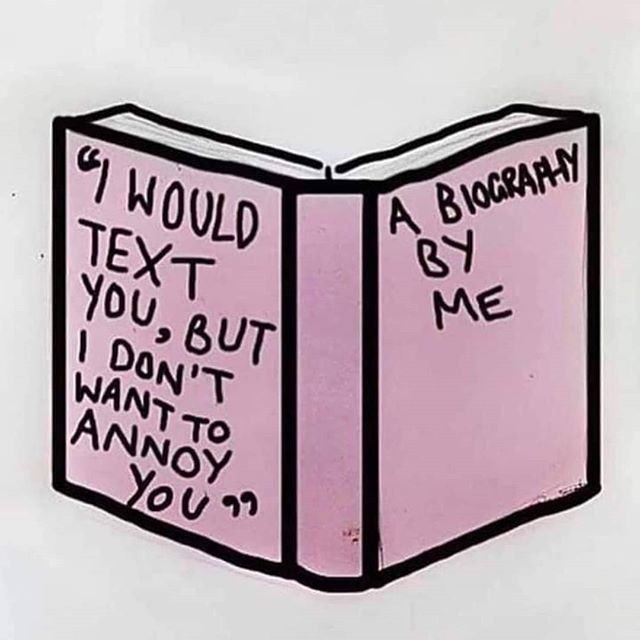 “I WOULD
TEXT
YOU, BUT
I DON'T
WANT TO
ANNOY
YOU”
A BIOGRAPHY
BY
ME